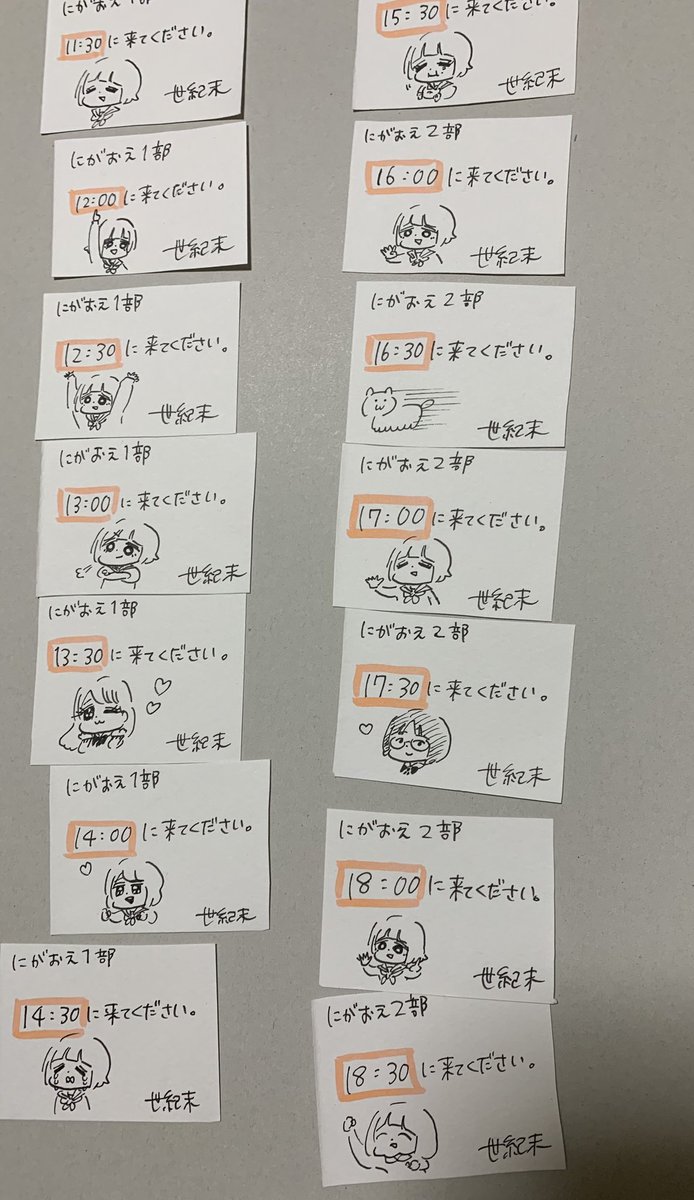 にがおえ1部
11:30に来てください。
世紀末
にがおえ1部
12:00に来てください。
世紀末
にがおえ1部
12:30に来てください。
世紀末
にがおえ1部
13:00に来てください。
世紀末
にがおえ1部
13:30に来てください。
世紀末
にがおえ1部
14:00に来てください。
世紀末
にがおえ1部
14:30に来てください。
世紀末
15:30に来てください。
世紀末
にがおえ2部
16:00に来てください。
世紀末
にがおえ2部
16:30に来てください。
世紀末
にがおえ2部
17:00に来てください。
世紀末
にがおえ2部
17:30に来てください。
世紀末
にがおえ2部
18:00に来てください。
世紀末
にがおえ2部
18:30に来てください。
世紀末